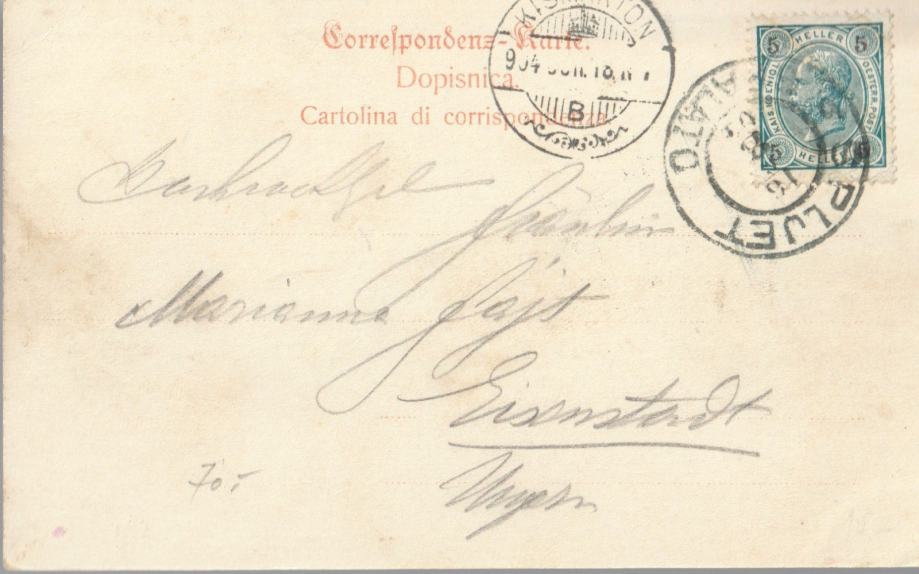 Correspondenz-Karte.
Dopisnica.
Cartolina di corrispondenza
KISMARTON
904 JUN. 18. N 1
B
5 HELLER 5
KAIS KOENIGL OESTERR POST
5 HELLER 5
SPLJET
SPALATO
Fräulein
Marianna Fajt
Eisenstadt
Ungarn
70.-